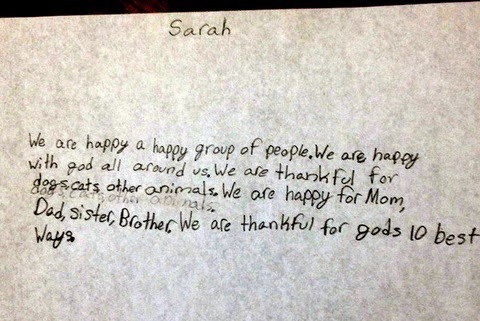 Sarah
We are happy a happy group of people. We are happy
with god all around us. We are thankful for
dogs, cats other animals. We are happy for Mom,
Dad, sister, Brother. We are thankful for gods 10 best
Ways.